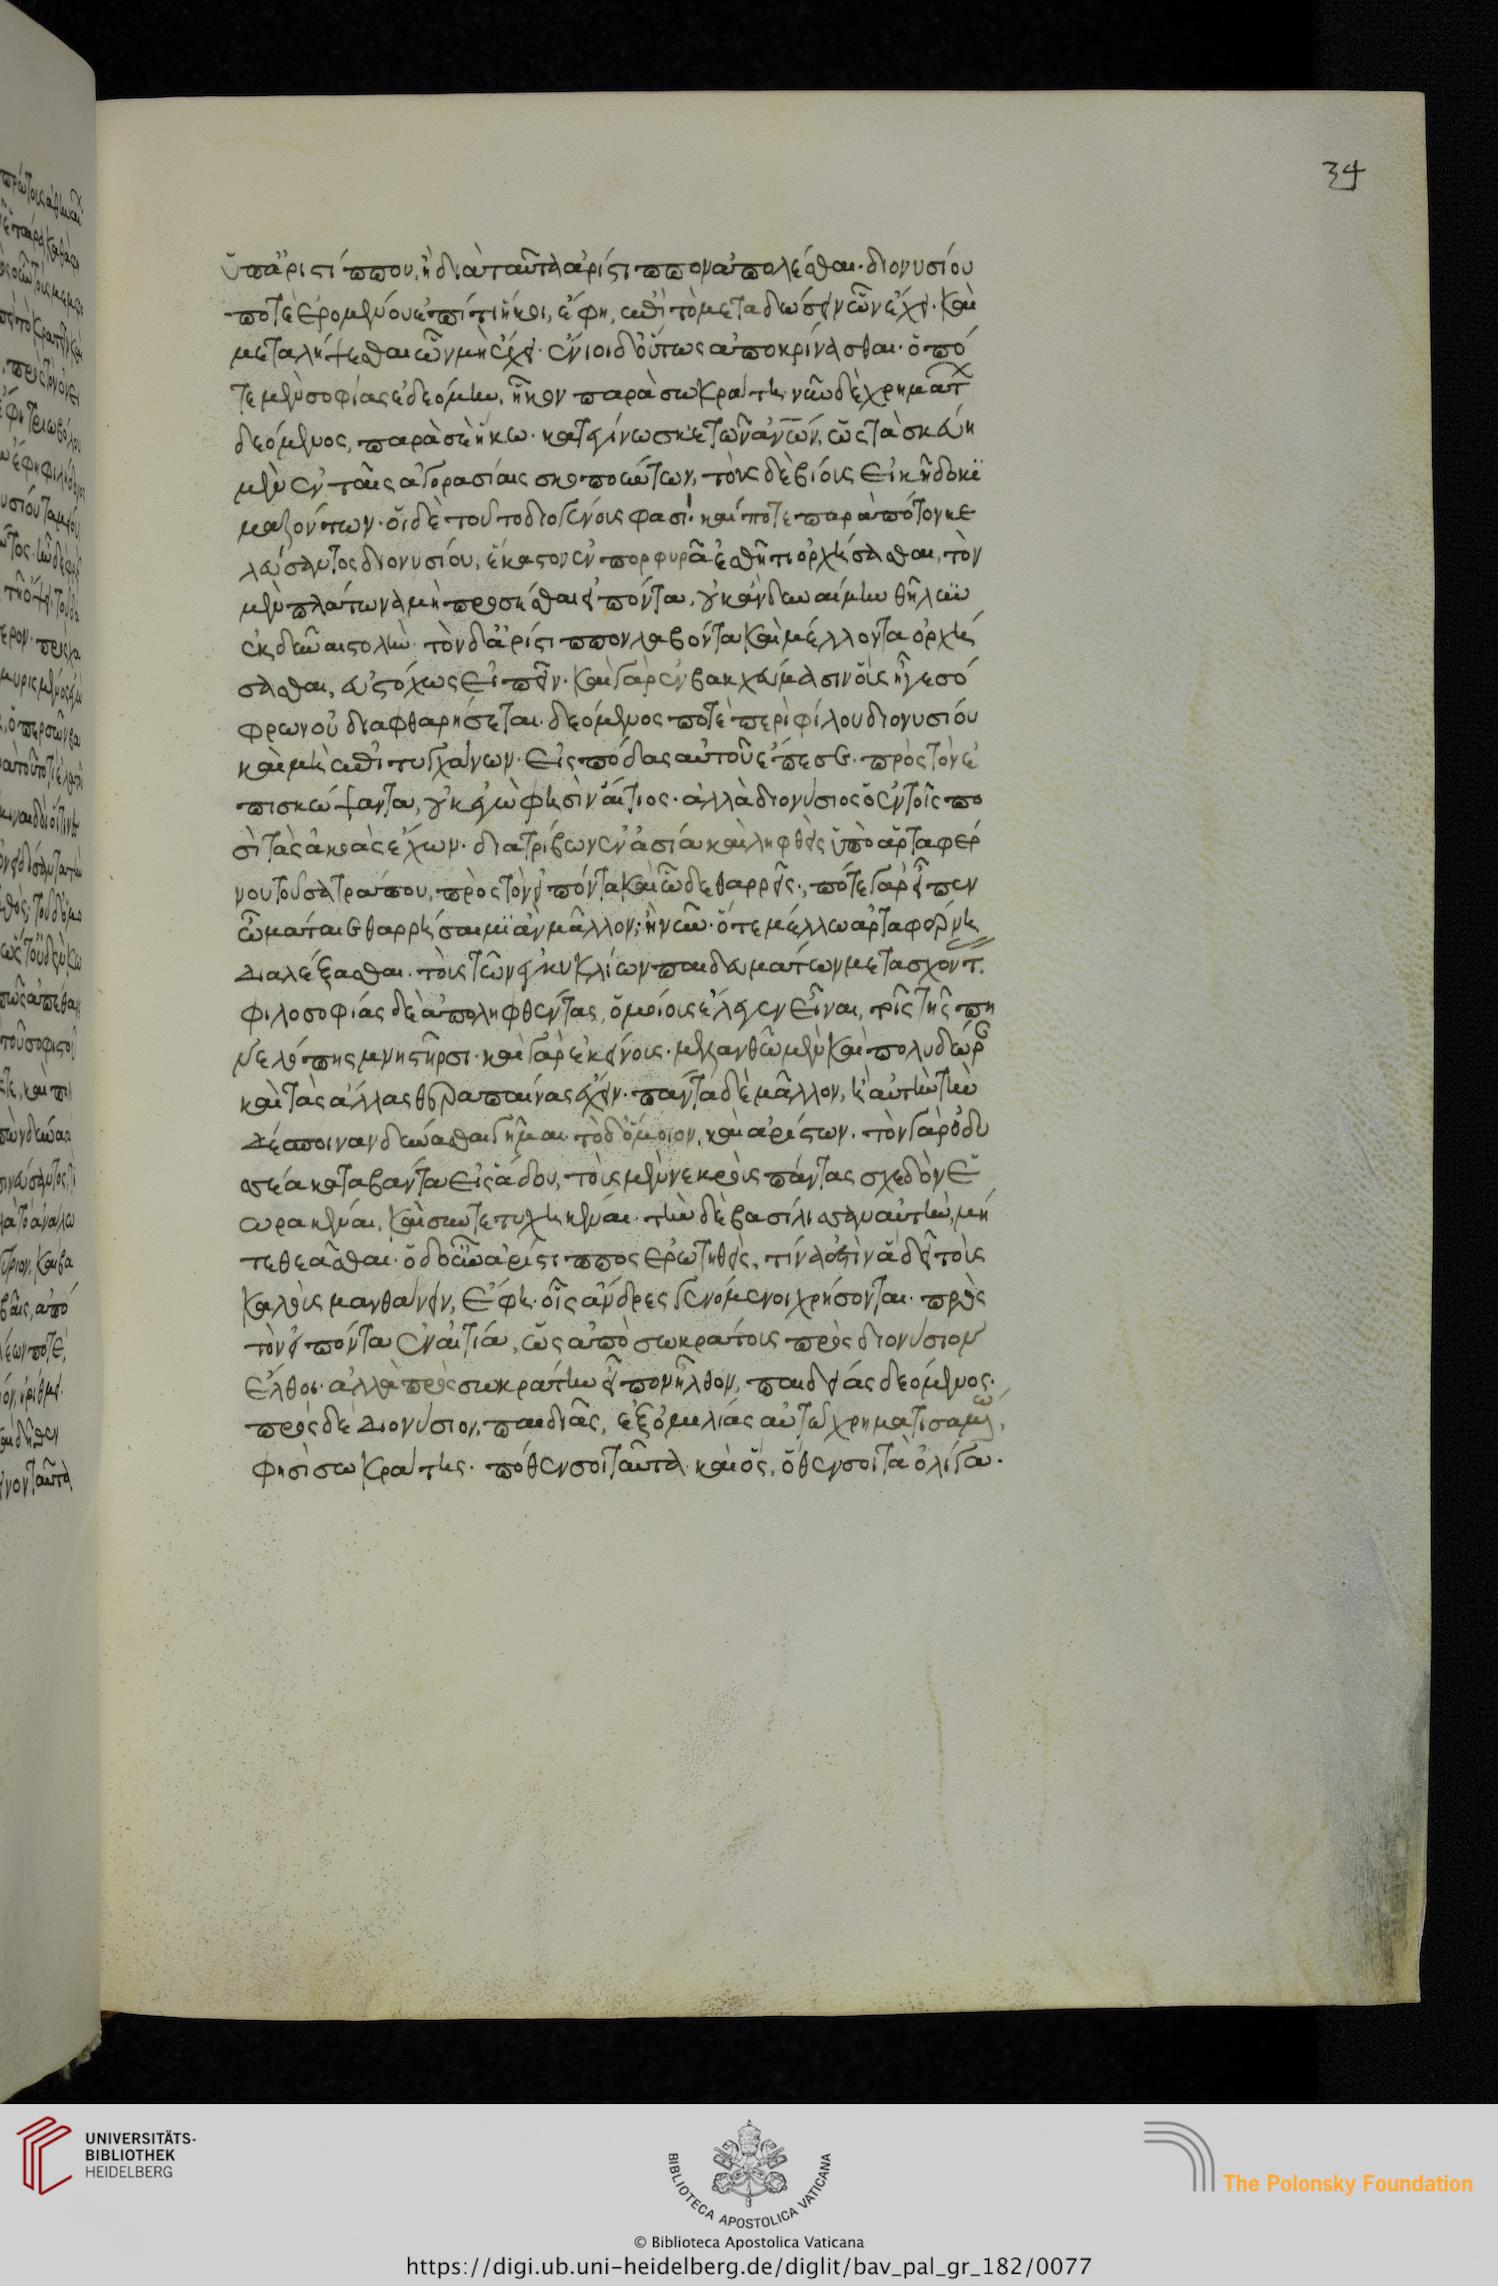 34
ὑπ' ἀριστίππου, ἢ διὰ ταῦτα ἀρίστιππον ἀπολέσθαι. διονυσίου
ποτὲ ἐρομένου ἐπὶ τί ἥκοι, ἔφη, ἐπὶ τὸ μεταδώσειν ὧν ἔχει. καὶ
μεταλήψεσθαι ὧν μὴ ἔχει. ἔνιοι δ' οὕτως ἀποκρίνασθαι. ὁπό
τε μὲν σοφίας ἐδεόμην, ἧκον παρὰ σωκράτην. νῦν δὲ χρημάτων
δεόμενος, παρὰ σὲ ἥκω. κατεγίνωσκε τῶν ἀνῶν, ὡς τὰ σκεύη
μὲν ἐν ταῖς ἀγορασίαις σκοπούντων, τοὺς δὲ βίους εἰκῆ δοκι
μαζόντων. οἱ δὲ τοῦτο διογένους φασί. καί ποτε παρὰ πότον κε
λεύσαντος διονυσίου, ἕκαστον ἐν πορφυρᾶ ἐσθῆτι ὀρχήσασθαι, τὸν
μὲν πλάτωνα μὴ προσήσθαι εἰπόντα, οὐκ ἂν δυναίμην θῆλυν
ἐκδῦναι στολήν. τὸν δ' ἀρίστιππον λαβόντα καὶ μέλλοντα ὀρχή
σασθαι, εὐστόχως εἰπεῖν. καὶ γὰρ ἐν βακχεύμασιν οὖσ' ἥγε σό
φρων οὐ διαφθαρήσεται. δεόμενος ποτὲ περὶ φίλου διονυσίου
καὶ μὴ ἐπιτυγχάνων. εἰς πόδας αὐτοῦ ἔπεσε. πρὸς τὸν ἐ
πισκώψαντα, οὐκ ἐγὼ φησὶν αἴτιος. ἀλλὰ διονύσιος ὁ ἐν τοῖς πο
σὶ τὰς ἀκοὰς ἔχων. διατρίβων ἐν ἀσία καὶ ληφθεὶς ὑπὸ ἀρταφέρ
νου τοῦ σατράπου, πρὸς τὸν εἰπόντα καὶ ὧδε θαρρεῖς; πότε γὰρ εἶπεν
ὦ μάταιε θαρρήσαιμι ἂν μᾶλλον; ἢ νῦν. ὅτε μέλλω ἀρταφέρνη
διαλέξασθαι. τοὺς τῶν ἐγκυκλίων παιδευμάτων μετασχόντ.
φιλοσοφίας δὲ ἀπολειφθέντας, ὁμοίους ἔλεγεν εἶναι, τοῖς τῆς πη
νελόπης μνηστῆρσι. καὶ γὰρ ἐκείνους. μελανθὼ μὲν καὶ πολυδώραν
καὶ τὰς ἄλλας θεραπαίνας ἔχειν. πάντα δὲ μᾶλλον, ἢ αὐτὴν τὴν
δέσποιναν δύνασθαι γῆμαι. τὸ δ' ὅμοιον, καὶ ἀρίστων. τὸν γὰρ ὀδυ
σσέα καταβάντα εἰς ἅδου, τοὺς μὲν νεκροὺς πάντας σχεδὸν ἑ
ωρακέναι, καὶ συντετυχηκέναι. τὴν δὲ βασίλισσαν αὐτὴν, μὴ
τεθεᾶσθαι. ὁ δ' οὖν ἀρίστιππος ἐρωτηθεὶς, τίνα ἐστὶν ἃ δεῖ τοὺς
καλοὺς μανθάνειν, ἔφη. οἷς ἄνδρες γενόμενοι χρήσονται. πρὸς
τὸν εἰπόντα ἐν αἰτία, ὡς ἀπὸ σωκράτους πρὸς διονύσιον
ἔλθοι. ἀλλὰ πρὸς σωκράτην εἶπον ἦλθον, παιδείας δεόμενος.
πρὸς δὲ διονύσιον, παιδιᾶς, ἐξ ὁμιλίας αὐτῶ χρηματισαμένω,
φησὶ σωκράτης. πόθεν σοι ταῦτα. καὶ ὃς, ὅθεν σοι τὰ ὀλίγα.
UNIVERSITÄTS-
BIBLIOTHEK
HEIDELBERG
BIBLIOTECA APOSTOLICA VATICANA
The Polonsky Foundation
© Biblioteca Apostolica Vaticana
https://digi.ub.uni-heidelberg.de/diglit/bav_pal_gr_182/0077